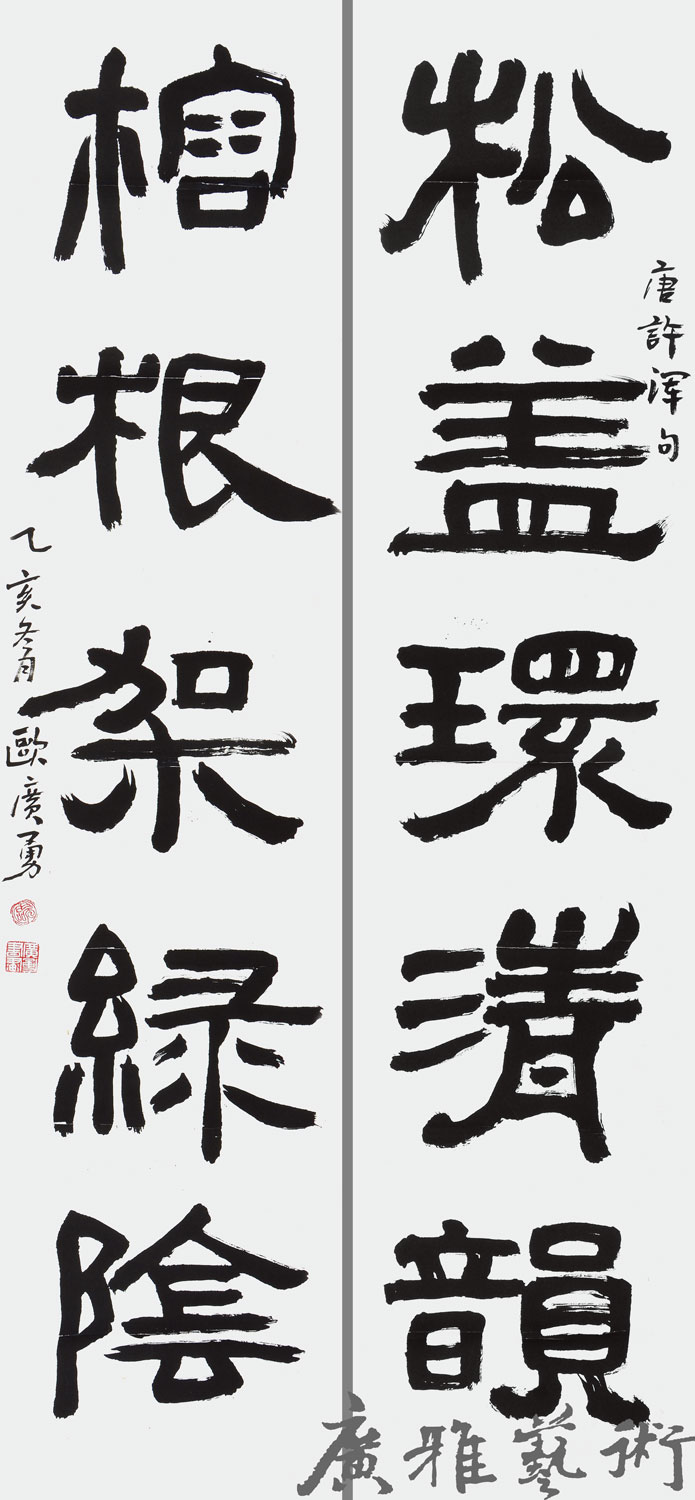 松盖環清韻
唐許渾句
榕根架緑陰
乙亥冬歐廣勇
廣雅藝術